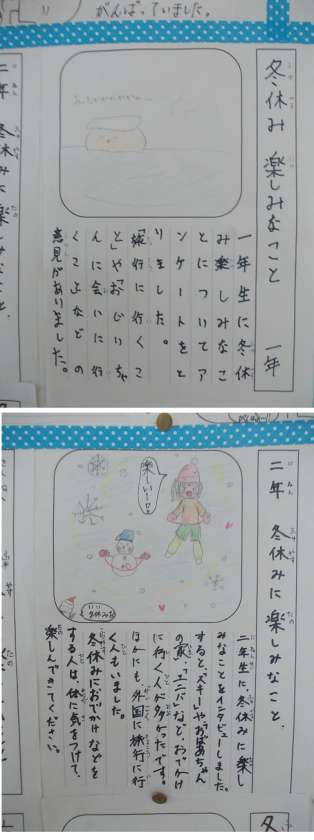 がんばっていました。
冬休み 楽しみなこと 一年
一年生に冬休
み楽しみなこ
とについてア
ンケートをと
りました。
「旅行に行くこ
と」や「おじいちゃ
んに会いに行
くことなどの
意見がありました。
二年 冬休みに楽しみなこと.
二年 冬休みに楽しみなこと.
楽しい~!!
二年生に、冬休みに楽し
みなことをインタビューしました。
すると、スキーや、おばあちゃん
の家、「ユニバ」など、おでかけ
に行く人が多かったです。
ほかにも、外国に旅行に行
く人もいました。
冬休みにおでかけなどを
する人は、体に気をつけて、
楽しんできてください。